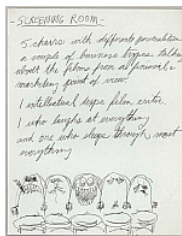 - SCREENING ROOM -
5 chairs with different personalities
a couple of business types talking
about the films from a financial &
marketing point of view
1 intellectual type film critic
1 who laughs at everything
and one who sleeps through most
everything